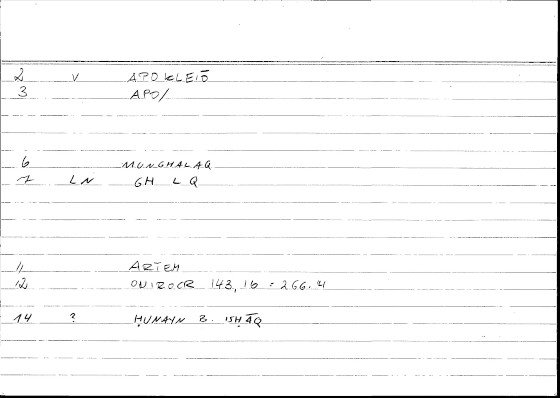 2 V APOKLEIŌ
3 APO/
6 MUNGHALAQ
7 LN GH L Q
11 ARTEM
12 ONIROCR 143,16 = 266.4
14 ? ḤUNAYN B. ISḤĀQ